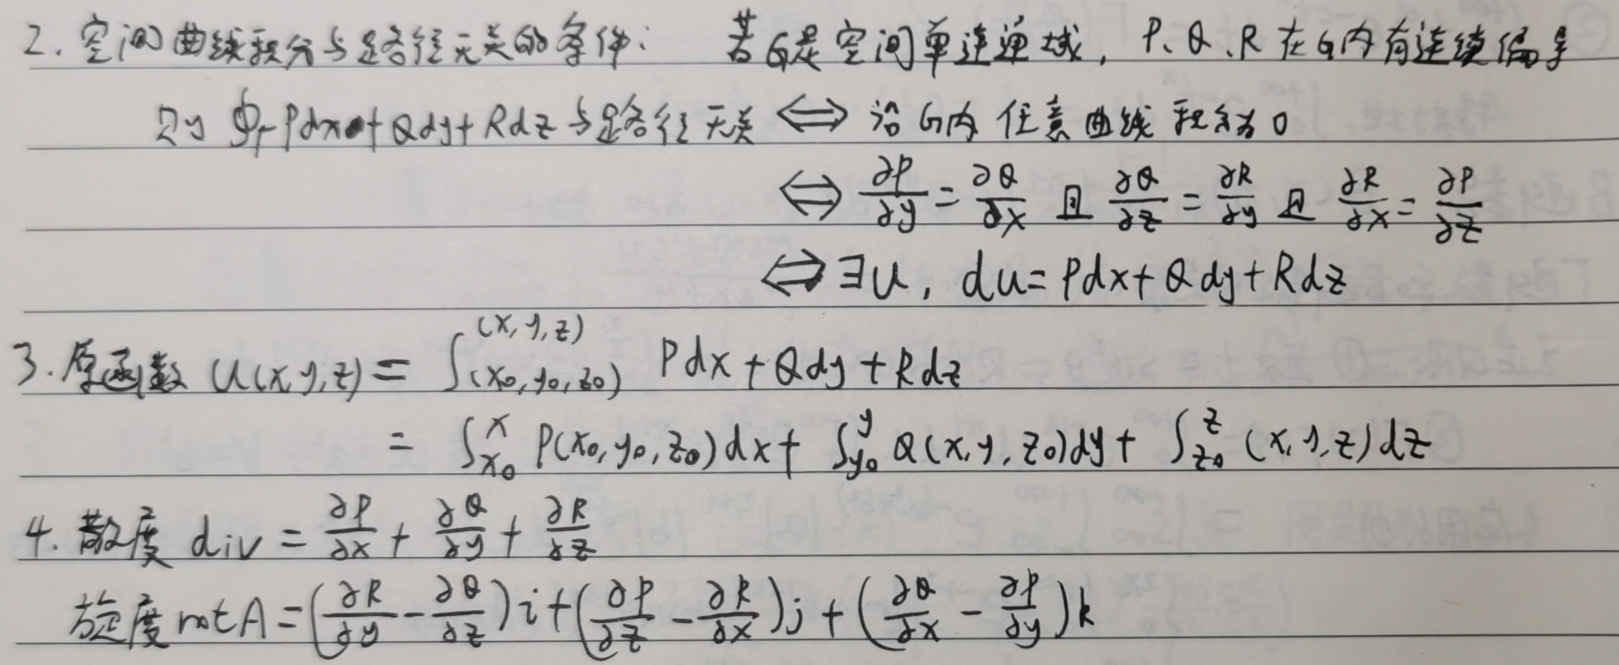 2. 空间曲线积分与路径无关的条件: 若G是空间单连通域, P、Q、R在G内有连续偏导
则 ∮_Γ Pdx+Qdy+Rdz与路径无关 ⟺ 沿G内任意曲线积分为0
⟺ ∂P/∂y = ∂Q/∂x 且 ∂Q/∂z = ∂R/∂y 且 ∂R/∂x = ∂P/∂z
⟺ ∃u, du = Pdx+Qdy+Rdz
3. 原函数 u(x,y,z) = ∫_(x₀,y₀,z₀)^(x,y,z) Pdx+Qdy+Rdz
= ∫_x₀^x P(x₀,y₀,z₀)dx + ∫_y₀^y Q(x,y,z₀)dy + ∫_z₀^z (x,y,z)dz
4. 散度 div = ∂P/∂x + ∂Q/∂y + ∂R/∂z
旋度 rotA = (∂R/∂y - ∂Q/∂z)i + (∂P/∂z - ∂R/∂x)j + (∂Q/∂x - ∂P/∂y)k